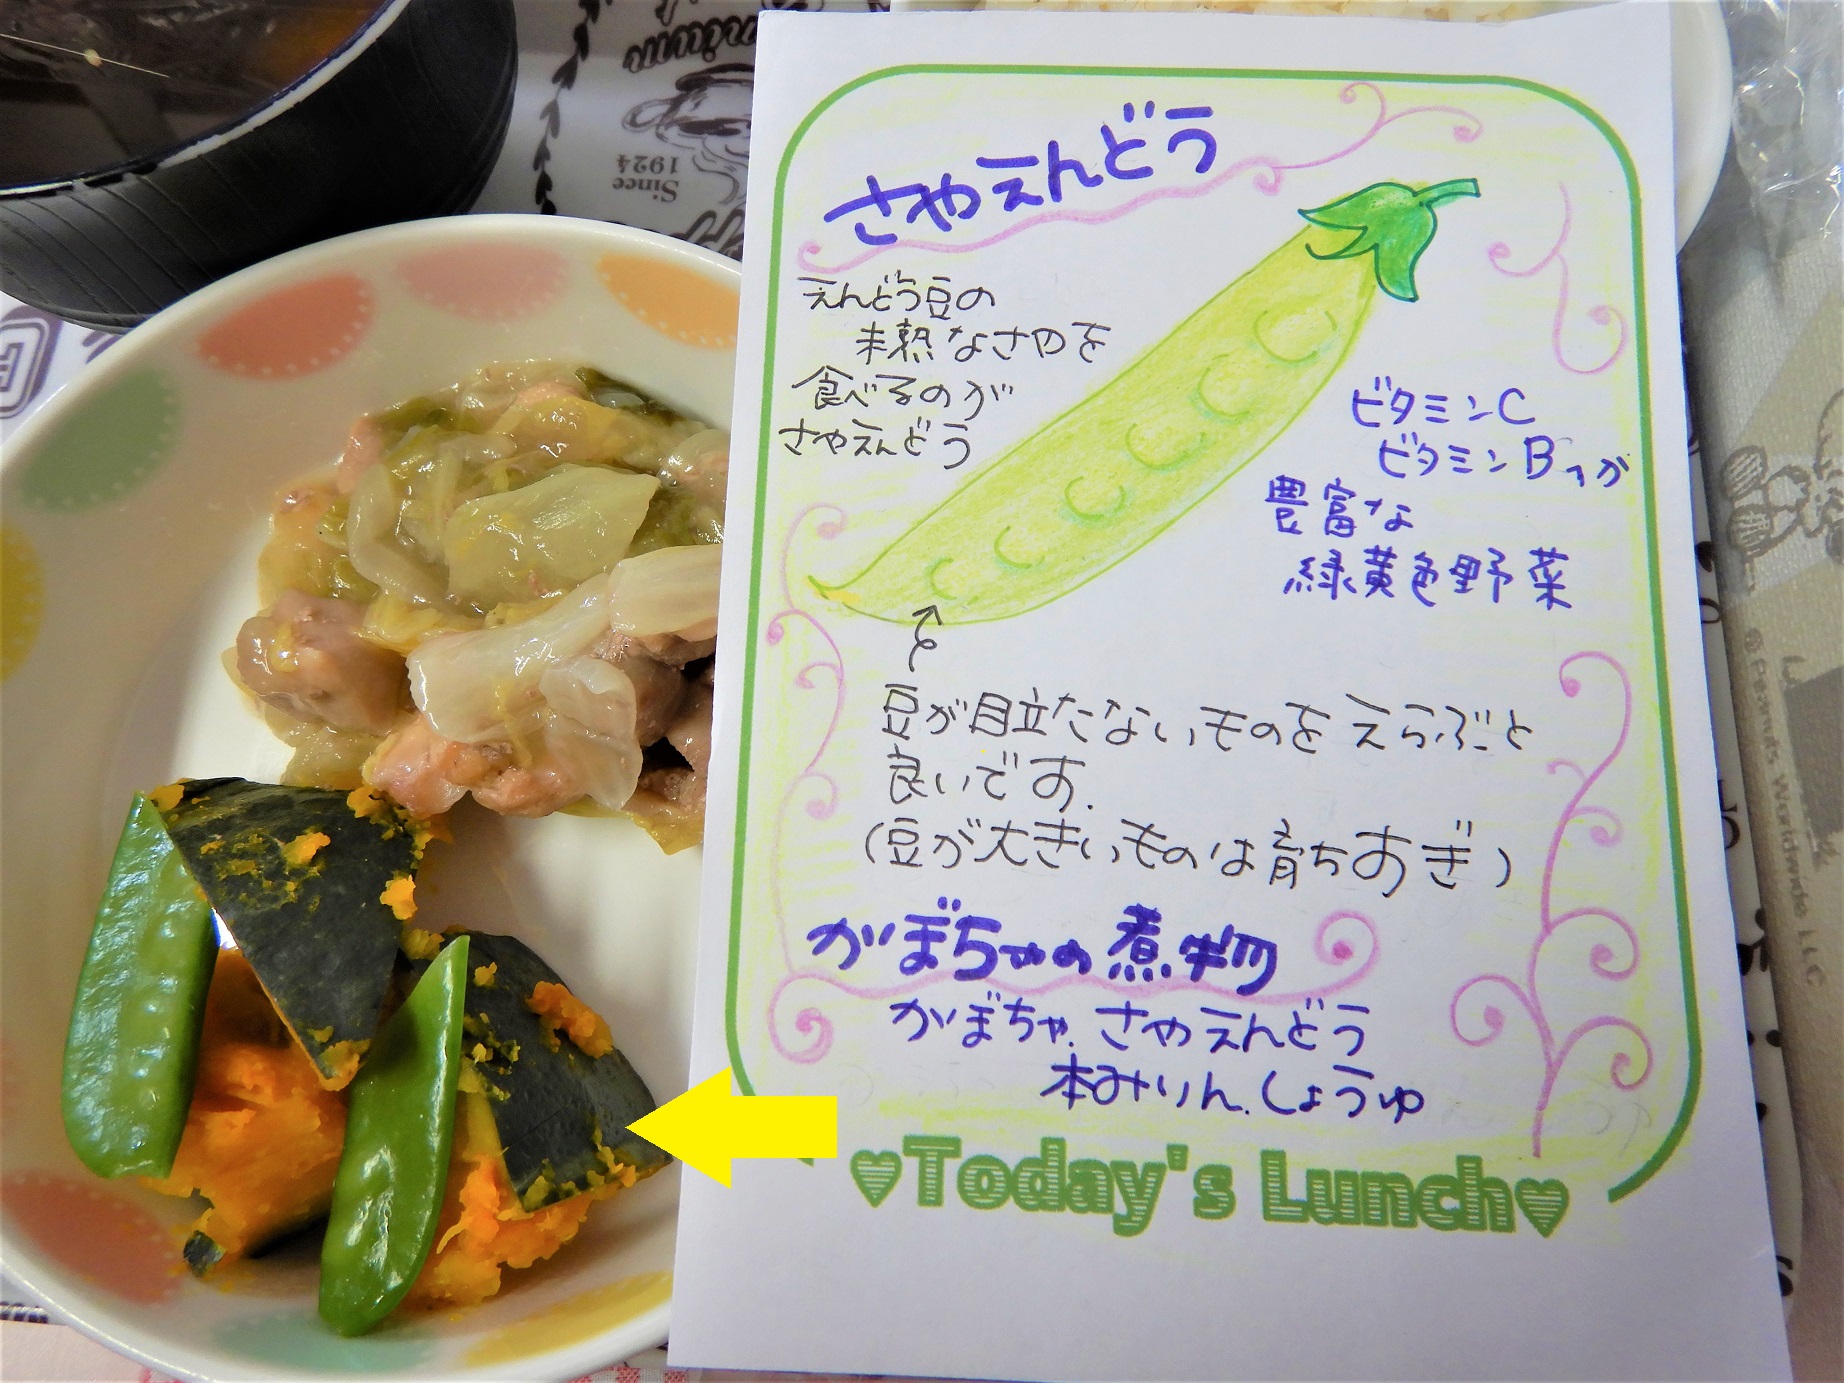 さやえんどう
えんどう豆の
未熟なさやを
食べるのが
さやえんどう
ビタミンC
ビタミンB1が
豊富な
緑黄色野菜
豆が目立たないものをえらぶと
良いです.
(豆が大きいものは育ちすぎ)
かぼちゃの煮物
かぼちゃ.さやえんどう
本みりん.しょうゆ
♥Today's Lunch♥
Since
1924
© Peanuts Worldwide LLC